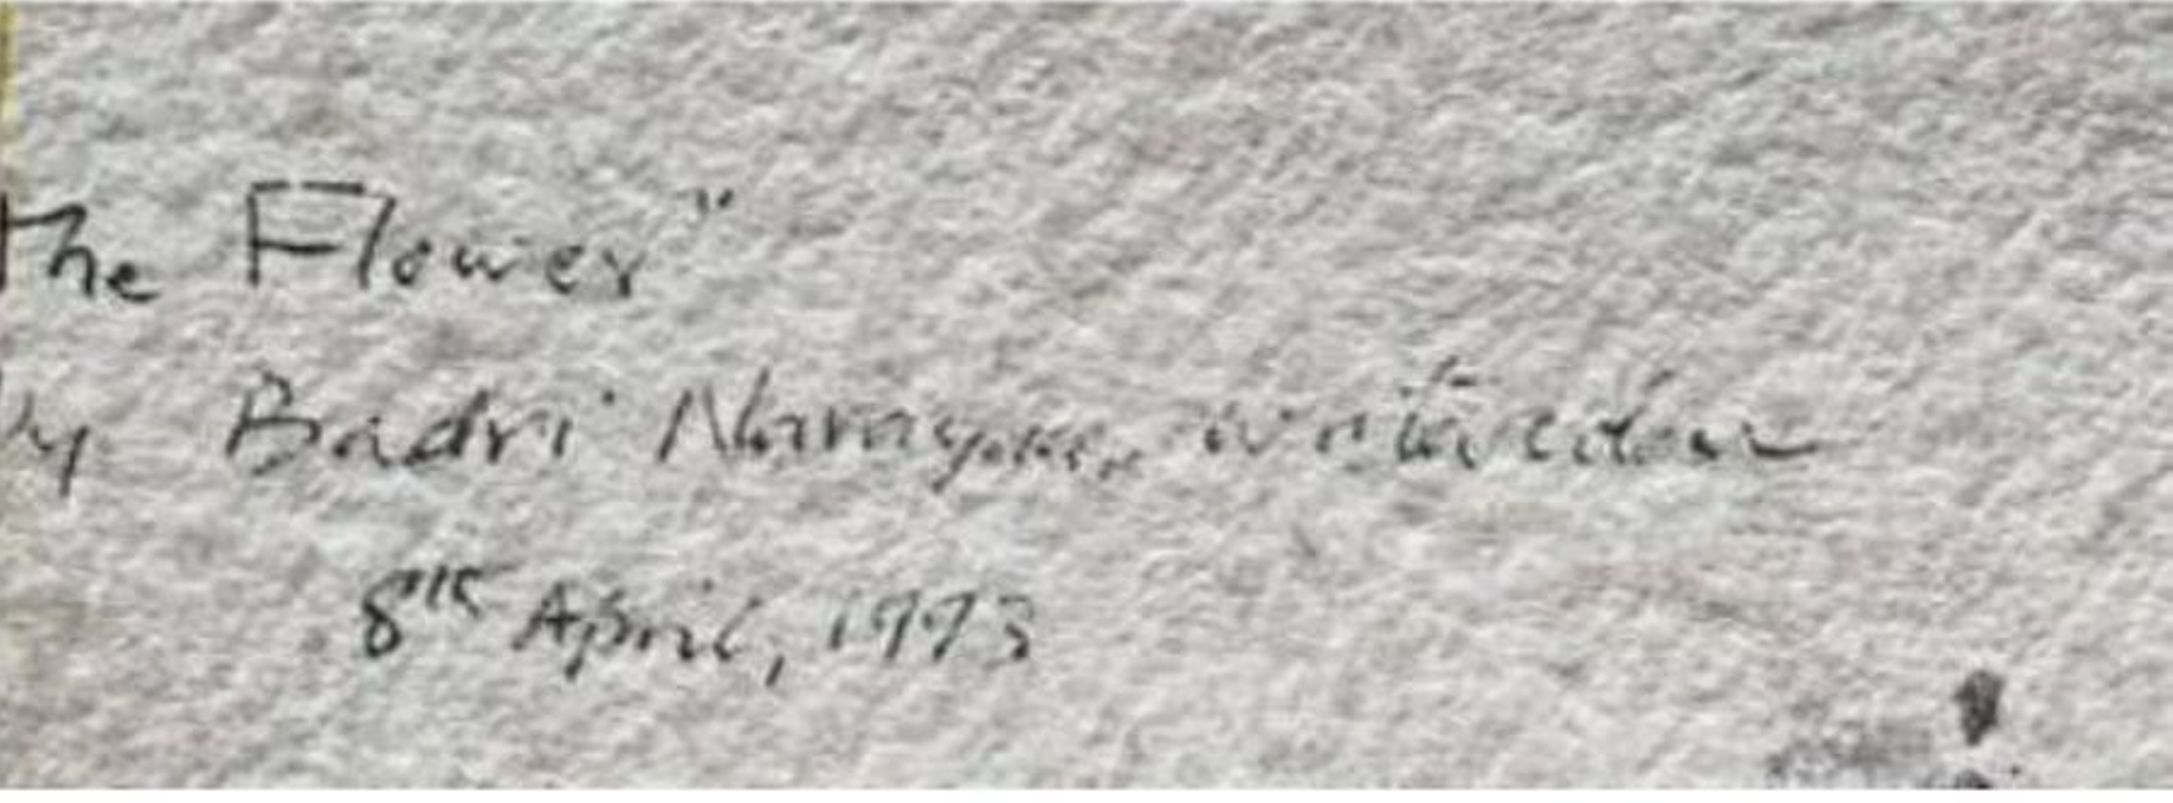 The Flower"
by Badri Narayan watercolour
8th April, 1993